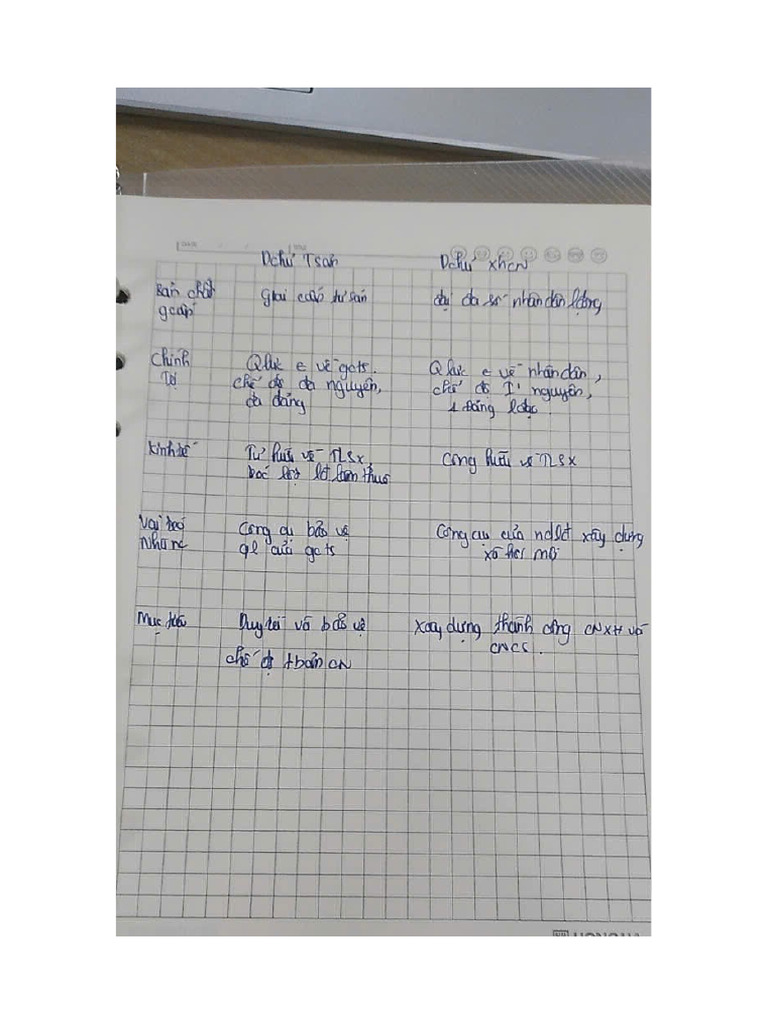 Dchủ Tsản Dchủ XHCN
Bản chất Giai cấp tư sản đại đa số nhân dân lđộng
gcấp
Chính Qlực e về gcts. Qlực e về nhân dân,
trị chế độ đa nguyên, chế độ I' nguyên,
đa đảng 1 Đảng lđạo.
Kinh tế Tư hữu về TLSX, Công hữu về TLSX
bóc lột lđ làm thuê
Vai trò Công cụ bảo vệ Công cụ của ndlđ xây dựng
Nhà nc ql của gcts xã hội mới
Mục tiêu Duy trì và bảo vệ Xây dựng thành công CNXH và
chế độ tbản CN CNCS.